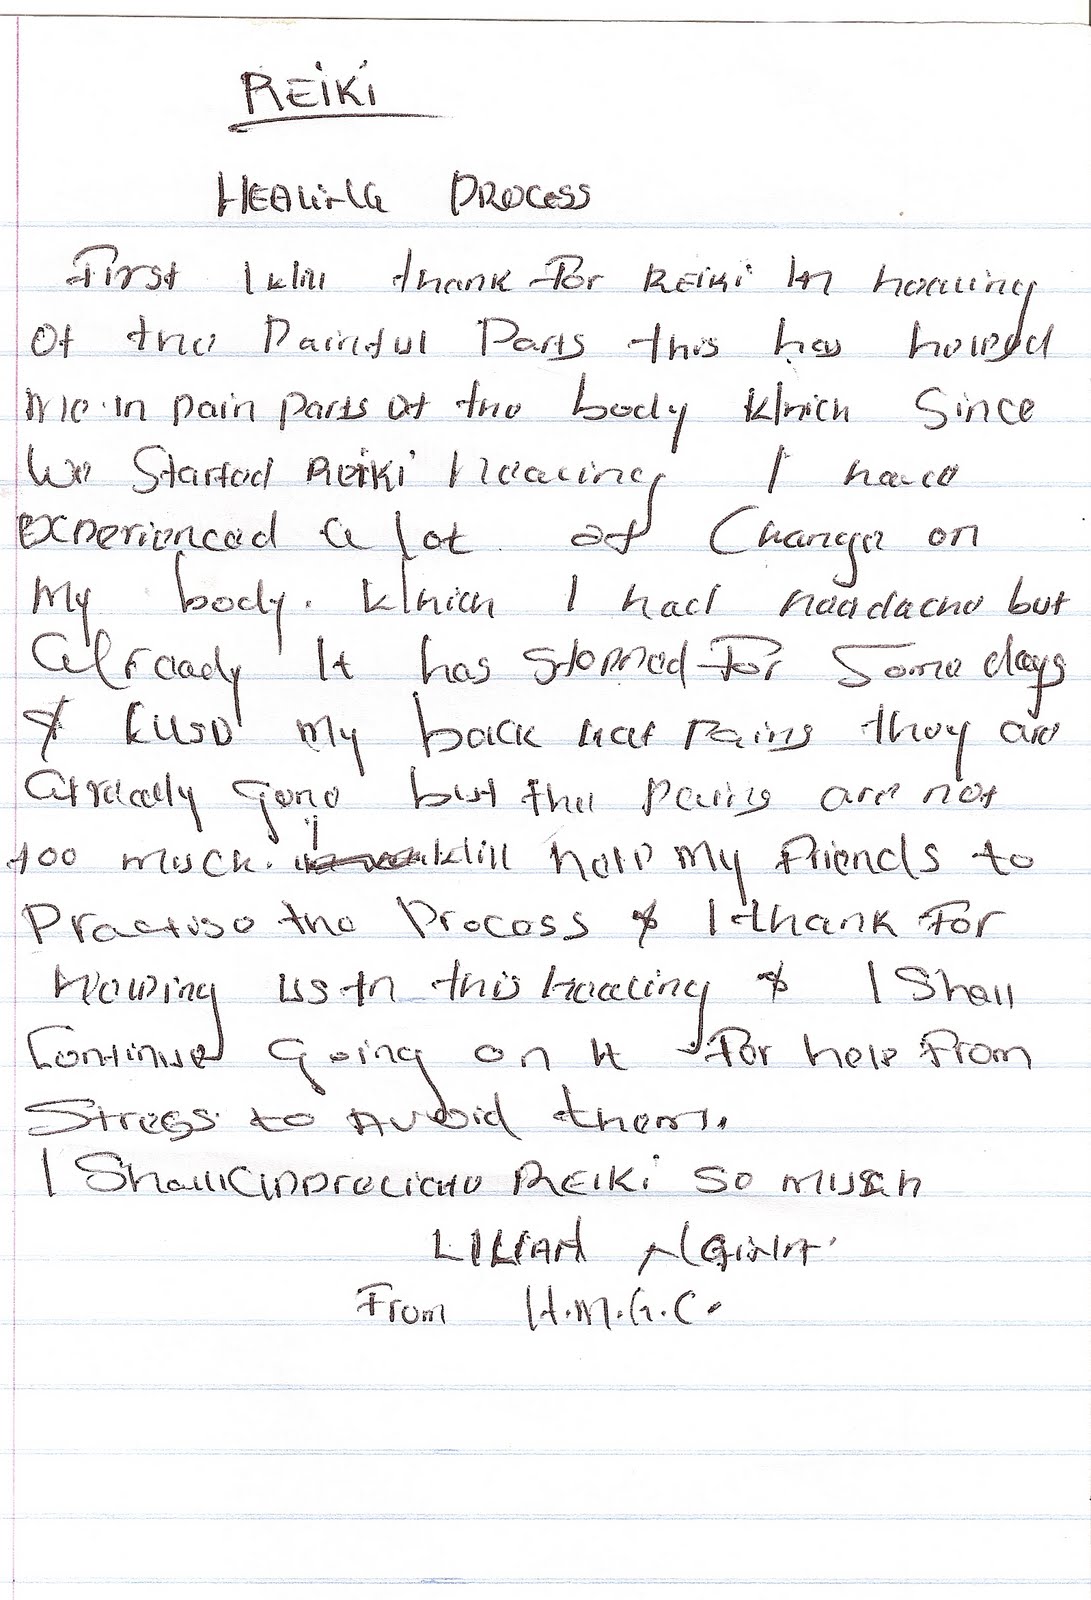 REIKI
HEALING PROCESS
First I will thank for REIKI In healing
Of the Painful Parts this has helped
me in pain parts of the body which Since
We Started REIKI Healing I have
experienced a lot of Change on
My body. Which I had headache but
already It has stopped for Some days
& also my back pains they are
already gone but the pains are not
too much. I will help my friends to
Practise the Process & I thank for
us In this healing & I Shall
Continue going on It For help From
Stress to Avoid them.
I Shall appreciate REIKI so much
LILIAN
From H.M.G.C.